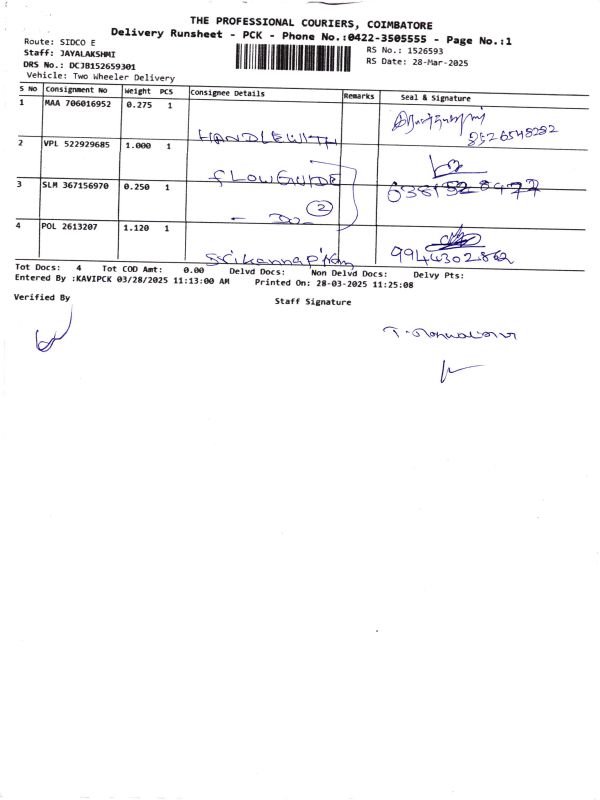 THE PROFESSIONAL COURIERS, COIMBATORE
Delivery Runsheet - PCK - Phone No.:0422-3505555 - Page No.:1
Route: SIDCO E
RS No.: 1526593
Staff: JAYALAKSHMI
RS Date: 28-Mar-2025
DRS No.: DCJB152659301
Vehicle: Two Wheeler Delivery
S No Consignment No Weight PCS Consignee Details Remarks Seal & Signature
1 MAA 706016952 0.275 1 HANDLEWITH 8526548282
2 VPL 522929685 1.000 1 FLOWGUIDE
3 SLM 367156970 0.250 1 - Do - 2
4 POL 2613207 1.120 1 9944302862
Tot Docs: 4 Tot COD Amt: 0.00 Delvd Docs: Non Delvd Docs: Delvy Pts:
Entered By :KAVIPCK 03/28/2025 11:13:00 AM Printed On: 28-03-2025 11:25:08
Verified By
Staff Signature